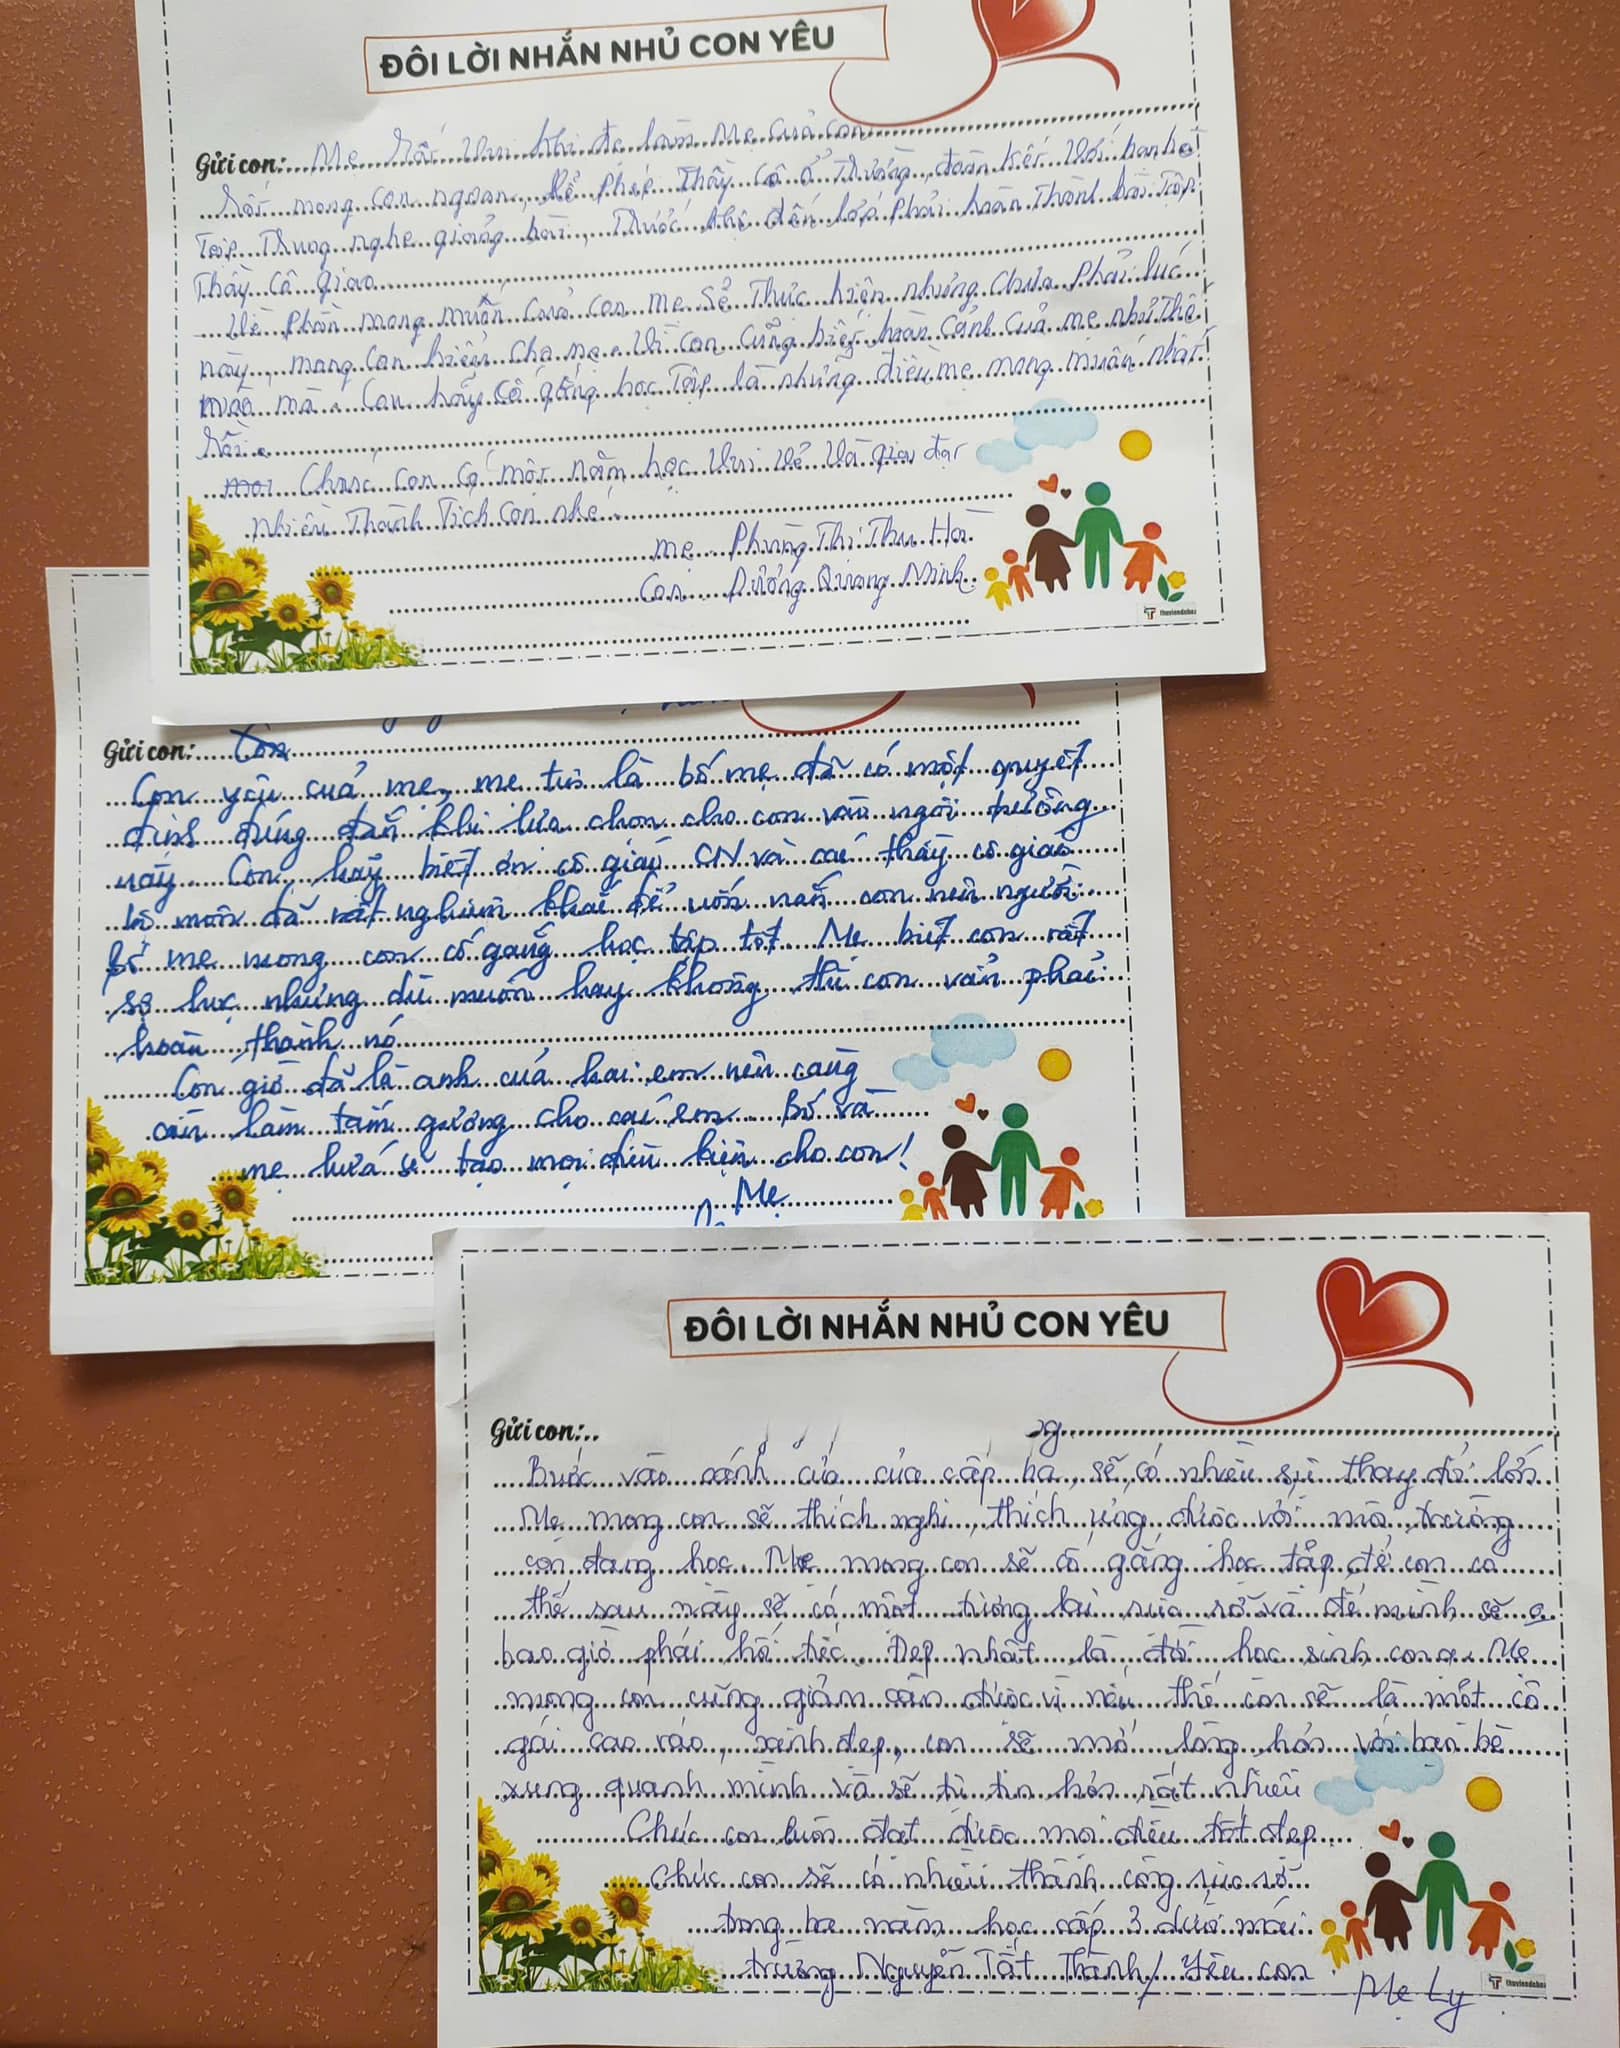 ĐÔI LỜI NHẮN NHỦ CON YÊU
Gửi con: Mẹ rất vui khi đc làm mẹ của con
rất mong con ngoan, lể phép thầy cô ở trường, đoàn kết với bạn bè
Tập Trung nghe giảng bài, Trước khi đến lớp phải hoàn thành bài Tập
Thầy cô giao
Về phần mong muốn của con mẹ sẻ Thực hiện nhưng chưa phải lúc
này, mong con hiểu cho mẹ. Vì con cũng biết hoàn cảnh của mẹ như Thế
nào mà. Con hãy cố gắng học Tập là những điều mẹ mong muốn nhất
rồi.
Chúc con có một năm học vui vẻ và gặt đạt
nhiều Thành Tích con nhé.
mẹ. Phùng Thị Thu Hà
Con. Dương Quang Minh
thuviendohoa
Gửi con: Con
Con yêu của mẹ, mẹ tin là bố mẹ đã có một quyết
định đúng đắn khi lựa chọn cho con vào ngôi trường
này. Con hãy biết ơn cô giáo CN và các thầy cô giáo
bộ môn đã rất nghiêm khắc để uốn nắn con nên người.
Bố mẹ mong con cố gắng học tập tốt. Mẹ biết con rất
sợ lực nhưng dù muốn hay không thì con vẫn phải
hoàn thành nó
Con giờ đã là anh của hai em nên càng
cần làm tấm gương cho các em. Bố và
mẹ hứa sẽ tạo mọi điều kiện cho con!
Mẹ
ĐÔI LỜI NHẮN NHỦ CON YÊU
Gửi con:
Bước vào cánh cửa của cấp ba, sẽ có nhiều sự thay đổi lớn
Mẹ mong con sẽ thích nghi, thích ứng được với môi trường
con đang học. Mẹ mong con sẽ cố gắng học tập để con có
thể sau này sẽ có một tương lai rực rỡ và để mình sẽ o
bao giờ phải hối tiếc. Đẹp nhất là đời học sinh con ạ. Mẹ
mong con cũng giảm cân được vì nếu thế con sẽ là một cô
gái cao ráo, xinh đẹp, con sẽ mở lòng hơn với bạn bè
xung quanh mình và sẽ tự tin hơn rất nhiều
Chúc con luôn đạt được mọi điều tốt đẹp
Chúc con sẽ có nhiều thành công rực rỡ
trong ba năm học cấp 3 dưới mái
trường Nguyễn Tất Thành/ Yêu con
Mẹ Ly
thuviendohoa